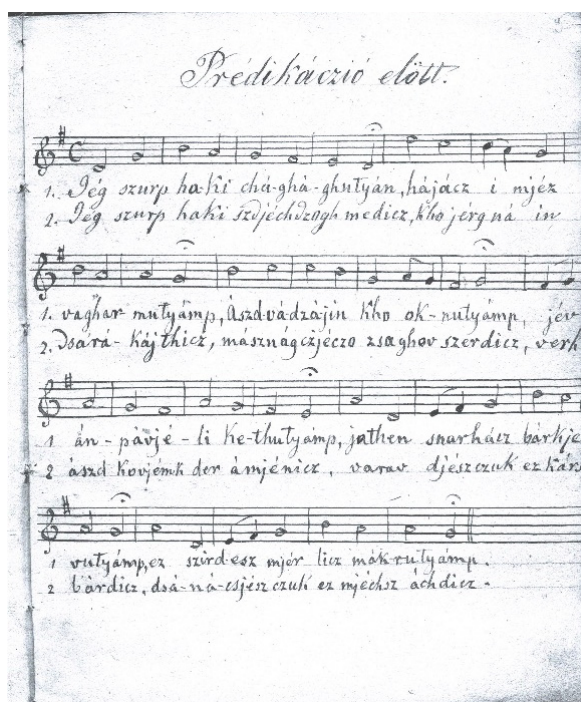 Prédikáczió előtt.
1. Jég szurp ha-ki chá-ghá-ghutyán, hájácz i mjéz
2. Jég szurp haki szdjéchdzogh medicz, kho jérg ná in
1. vaghar mutyámp, Ászd-vádzájin kho ok-nutyámp, jév
2. dsará-kájthicz, másznágczjéczo zsaghov szerdicz, verh
1 án-pávjé-li ke-thutyámp, jathen snarhácz bárkje
2 ászd kovjémk der ámjénicz, varav djészczuk ez
1 vutyámp, ez szird-esz mjér licz mák-rutyámp.
2 bárdicz, dsá-ná-csjész czuk ez mjéchsz áchdicz.